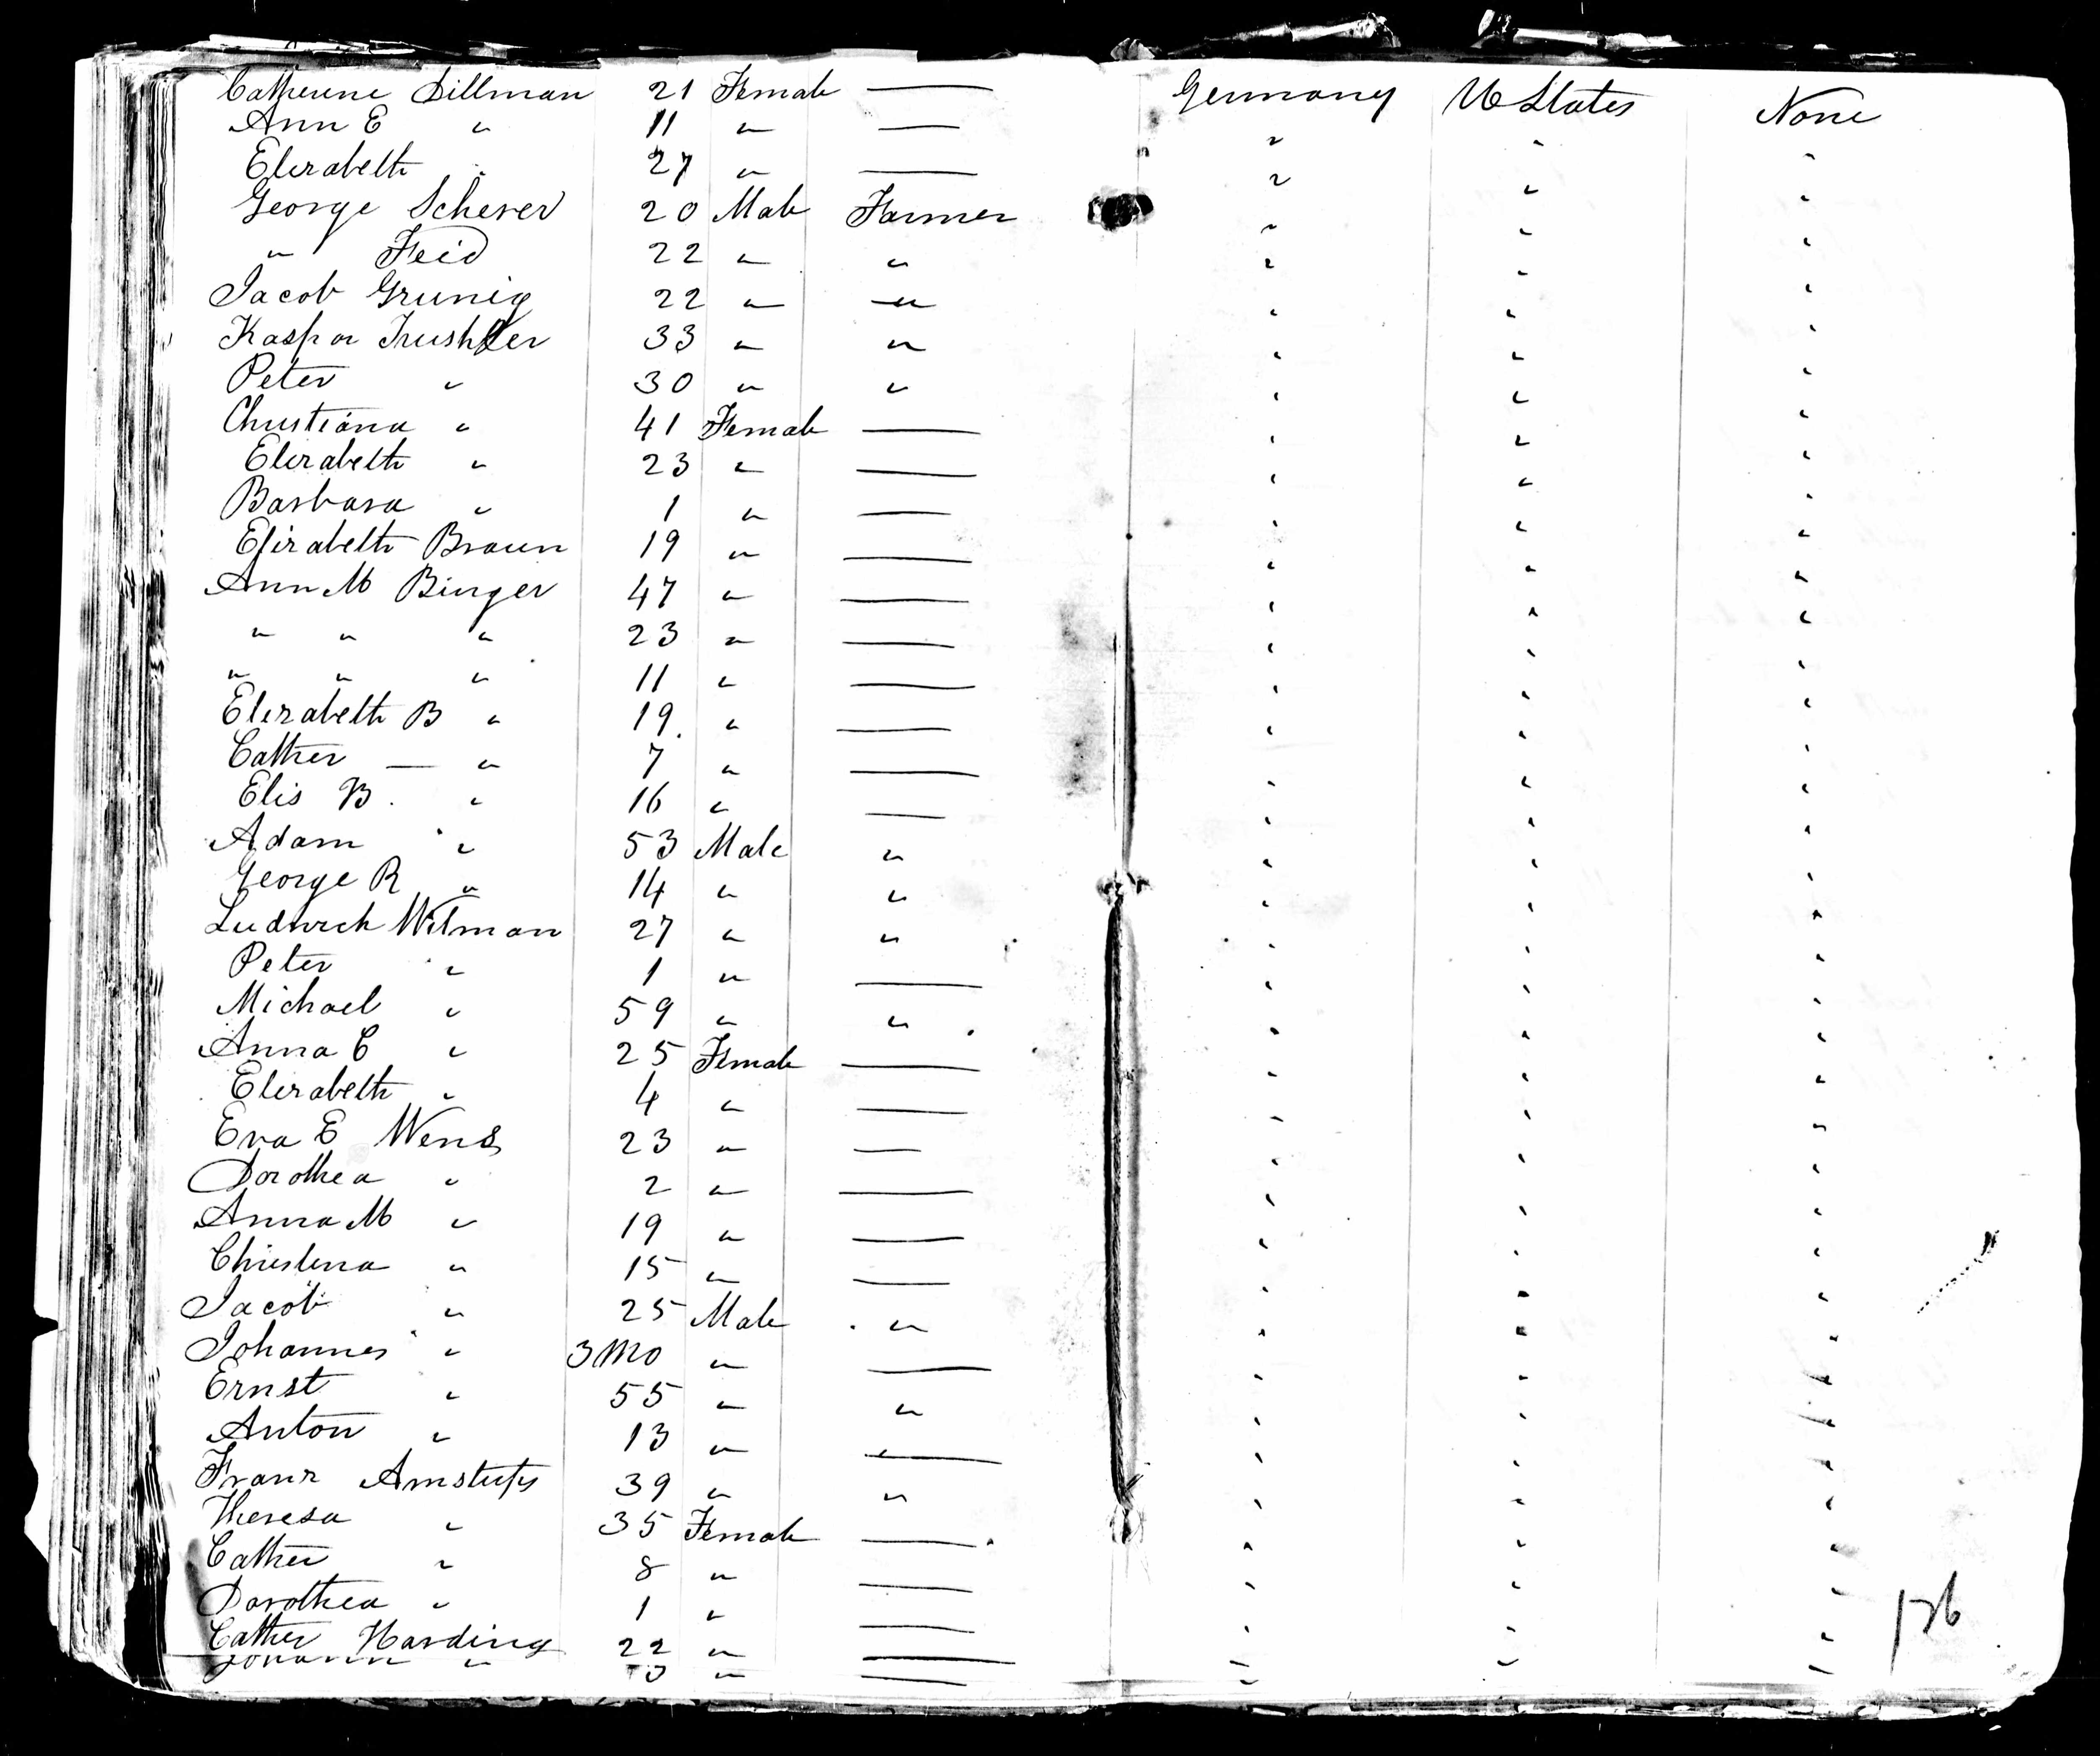 Catherine Dillman 21 Female — Germany U States None
Ann E " 11 " — " " "
Elizabeth " 27 " — " " "
George Scherer 20 Male Farmer " " "
" Feid 22 " " " " "
Jacob Grunig 22 " " " " "
Kaspar 33 " " " " "
Peter " 30 " " " " "
Christiana " 41 Female — " " "
Elizabeth " 23 " — " " "
Barbara " 1 " — " " "
Elizabeth Braun 19 " — " " "
Ann M Binger 47 " — " " "
" " " 23 " — " " "
" " " 11 " — " " "
Elizabeth B " 19 " — " " "
Cather — " 7 " — " " "
Elis B. " 16 " — " " "
Adam " 53 Male " " " "
George R " 14 " " " " "
Ludwich Witman 27 " " " " "
Peter " 1 " — " " "
Michael " 59 " " " " "
Anna C " 25 Female — " " "
Elizabeth " 4 " — " " "
Eva E Wens 23 " — " " "
Dorothea " 2 " — " " "
Anna M " 19 " — " " "
Christena " 15 " — " " "
Jacob " 25 Male " " " "
Johannes " 3 Mo " — " " "
Ernst " 55 " " " " "
Anton " 13 " — " " "
Franz Amstutz 39 " " " " "
Theresa " 35 Female — " " "
Cather " 8 " — " " "
Dorothea " 1 " — " " "
Cather Harding 22 " — " " "
Johann " " — " " "
136